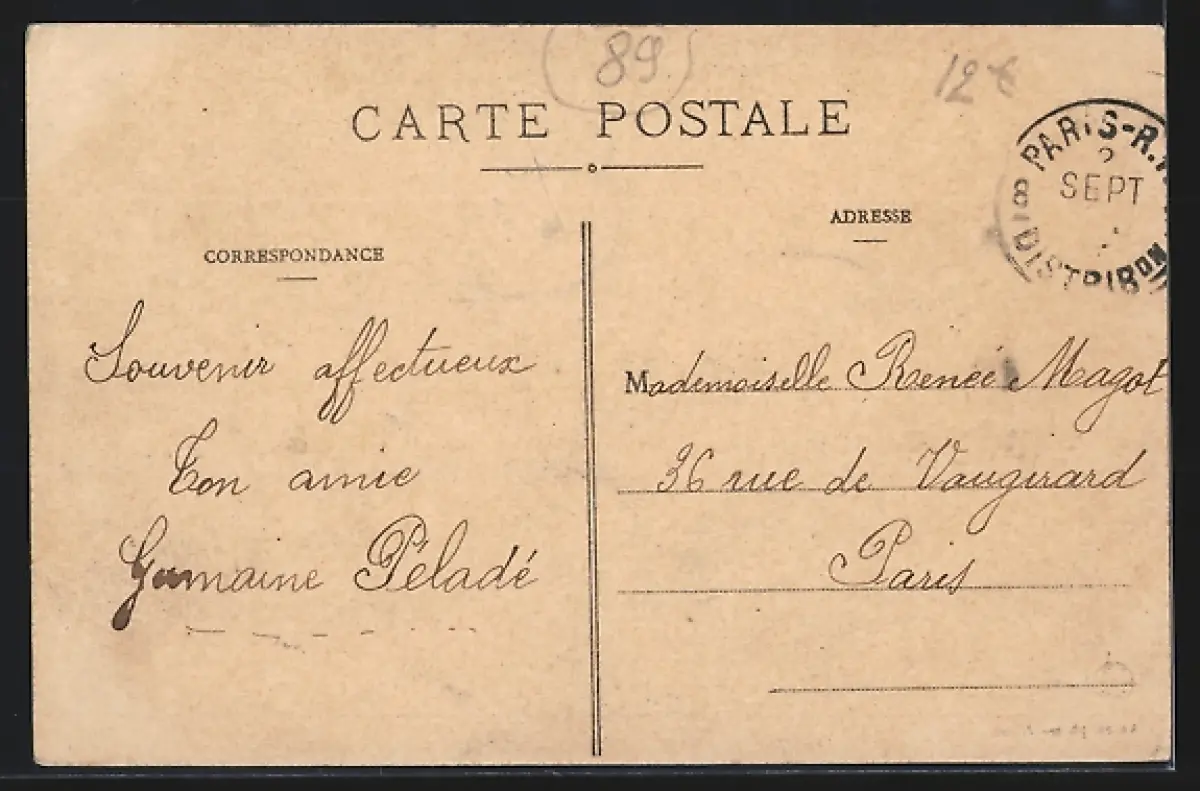 (89)
12€
CARTE POSTALE
PARIS-R.
2
SEPT
81 DISTRIBON
ADRESSE
CORRESPONDANCE
Souvenir affectueux
Ton amie
Germaine Péladé
Mademoiselle Renée Magot
36 rue de Vaugirard
Paris